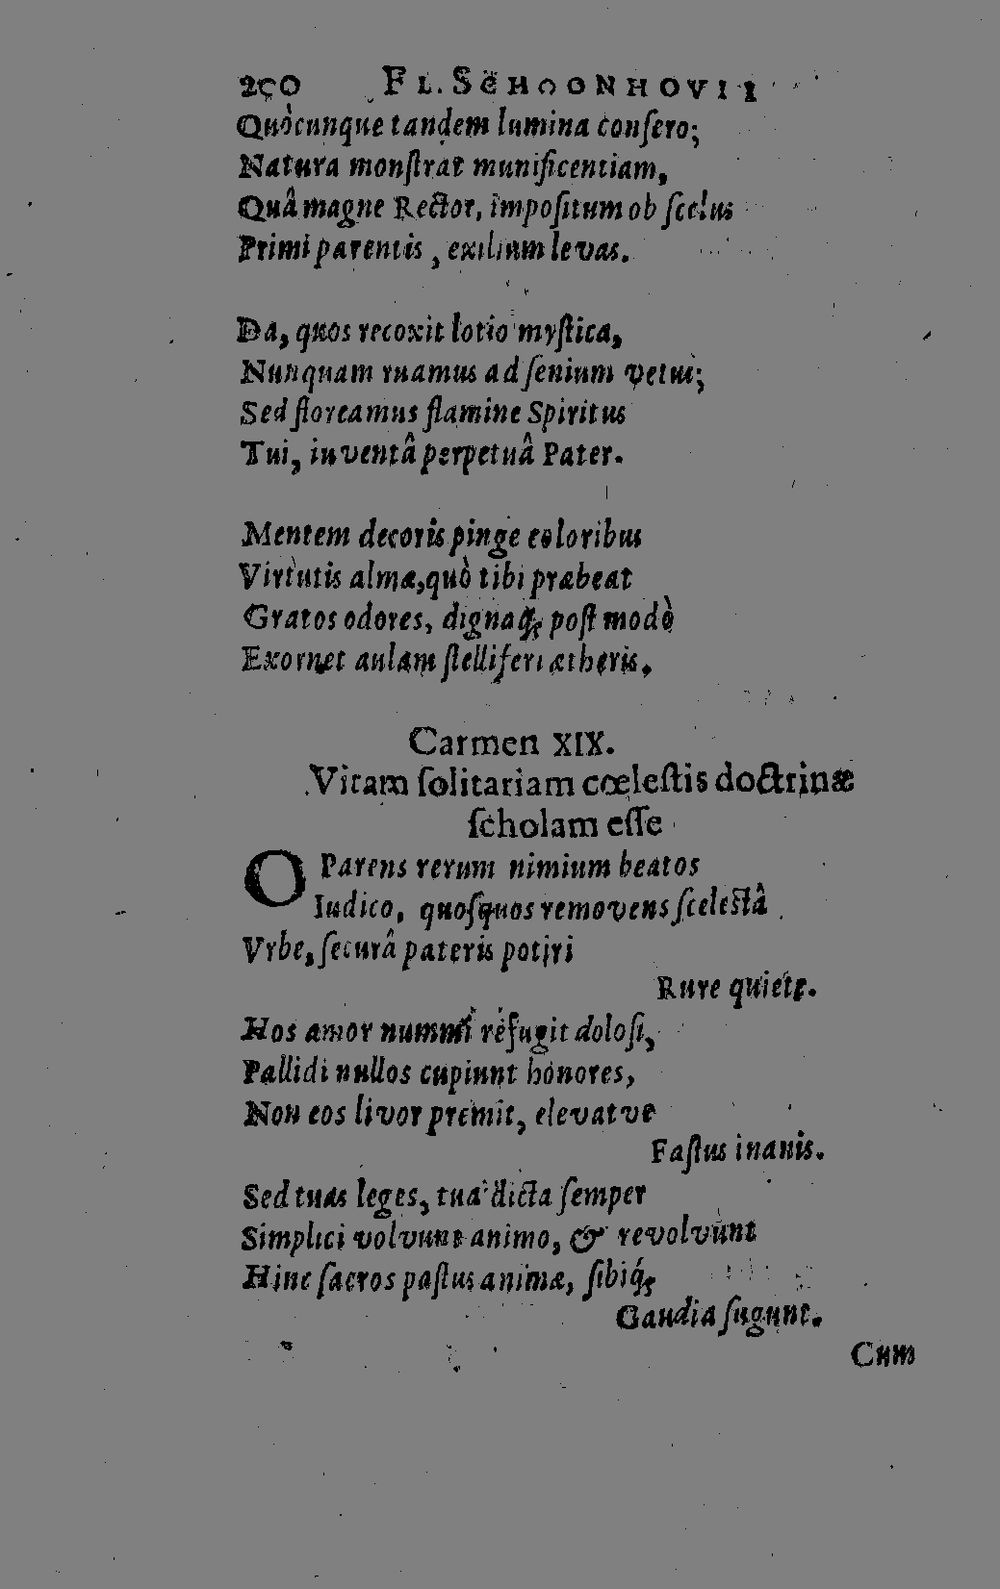 250 FL. SCHOONHOVII
Quòcunque tandem lumina conſero;
Natura monſtrat munificentiam,
Quâ magne Rector, impoſitum ob ſcelus
Primi parentis, exilium levas.
Da, quos recoxit lotio myſtica,
Nunquam ruamus ad ſenium vetus;
Sed floreamus flamine Spiritus
Tui, inventâ perpetuâ Pater.
Mentem decoris pinge coloribus
Virtutis almæ, quò tibi præbeat
Gratos odores, dignaq; poſt modò
Exornet aulam ſtelliferi ætheris.
Carmen XIX.
Vitam ſolitariam cœleſtis doctrinæ
ſcholam eſſe
O Parens rerum nimium beatos
Iudico, quoſquos removens ſceleſtâ
Vrbe, ſecurâ pateris potiri
Rure quiete.
Hos amor nummi refugit doloſi,
Pallidi nullos cupiunt honores,
Non eos livor premit, elevatve
Faſtus inanis.
Sed tuas leges, tua dicta ſemper
Simplici volvunt animo, & revolvunt
Hinc ſacros paſtus animæ, ſibiq́;
Gaudia ſugunt.
Cum